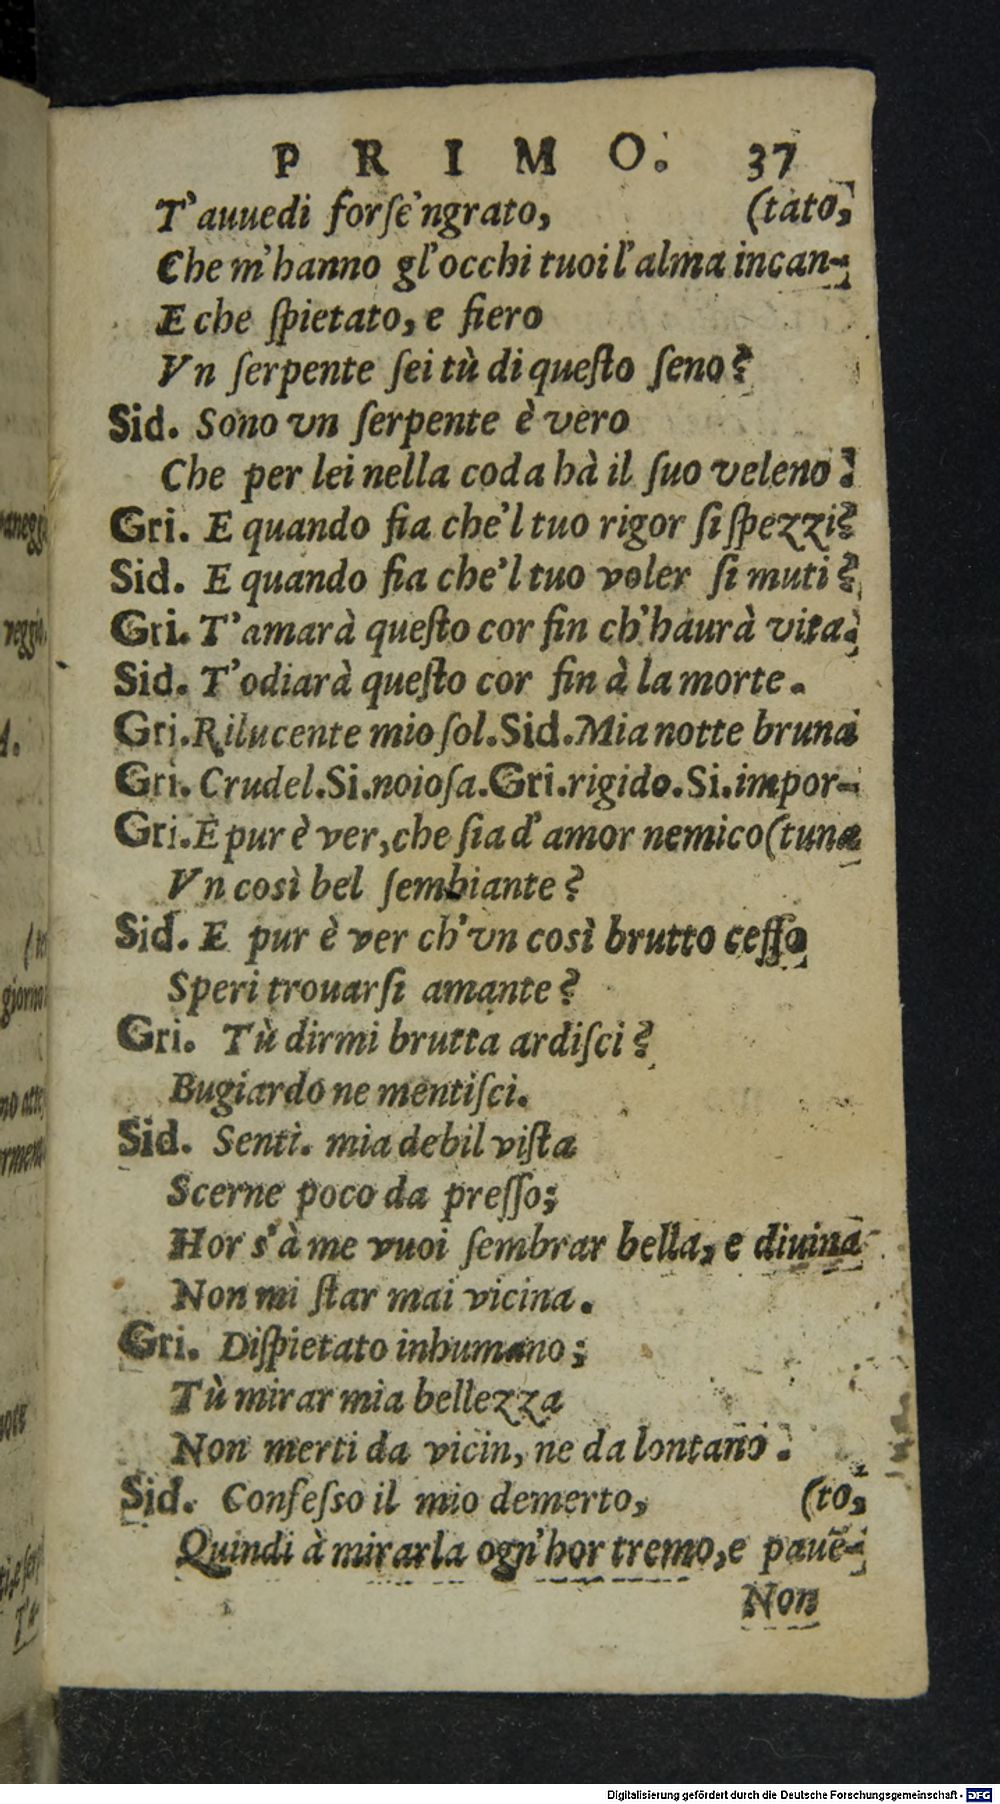 PRIMO. 37
T'auuedi forſe'ngrato, (tato,
Che m'hanno gl'occhi tuoi l'alma incan-
E che ſpietato, e fiero
Vn ſerpente ſei tù di queſto ſeno?
Sid. Sono vn ſerpente è vero
Che per lei nella coda hà il ſuo veleno.
Gri. E quando fia che'l tuo rigor ſi ſpezzi?
Sid. E quando fia che'l tuo voler ſi muti?
Gri. T'amarà queſto cor fin ch'haurà vita.
Sid. T'odiarà queſto cor fin à la morte.
Gri. Rilucente mio ſol. Sid. Mia notte bruna
Gri. Crudel. Si. noioſa. Gri. rigido. Si. impor-
Gri. E pur è ver, che ſia d'amor nemico (tuna
Vn così bel ſembiante?
Sid. E pur è ver ch'vn così brutto ceſſo
Speri trouarſi amante?
Gri. Tù dirmi brutta ardiſci?
Bugiardo ne mentiſci.
Sid. Senti. mia debil viſta
Scerne poco da preſſo;
Hor s'à me vuoi ſembrar bella, e diuina
Non mi ſtar mai vicina.
Gri. Diſpietato inhumano;
Tù mirar mia bellezza
Non merti da vicin, ne da lontano.
Sid. Confeſso il mio demerto, (to,
Quindi à mirarla ogn'hor tremo, e pauē-
Non
Digitalisierung gefördert durch die Deutsche Forschungsgemeinschaft - DFG